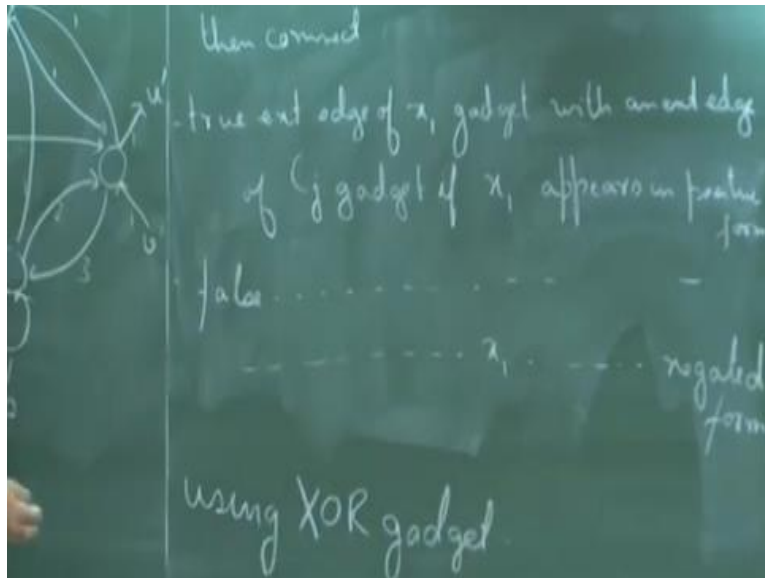 then connect
- true ext edge of x₁ gadget with an ext edge
of Cj gadget if x₁ appears in positive
form
- false . . . . - . . - . . . —
— - - - - - - . x₁ . . . . . . negated
form
using XOR gadget.
1
1
u'
1
2
3
1
v'